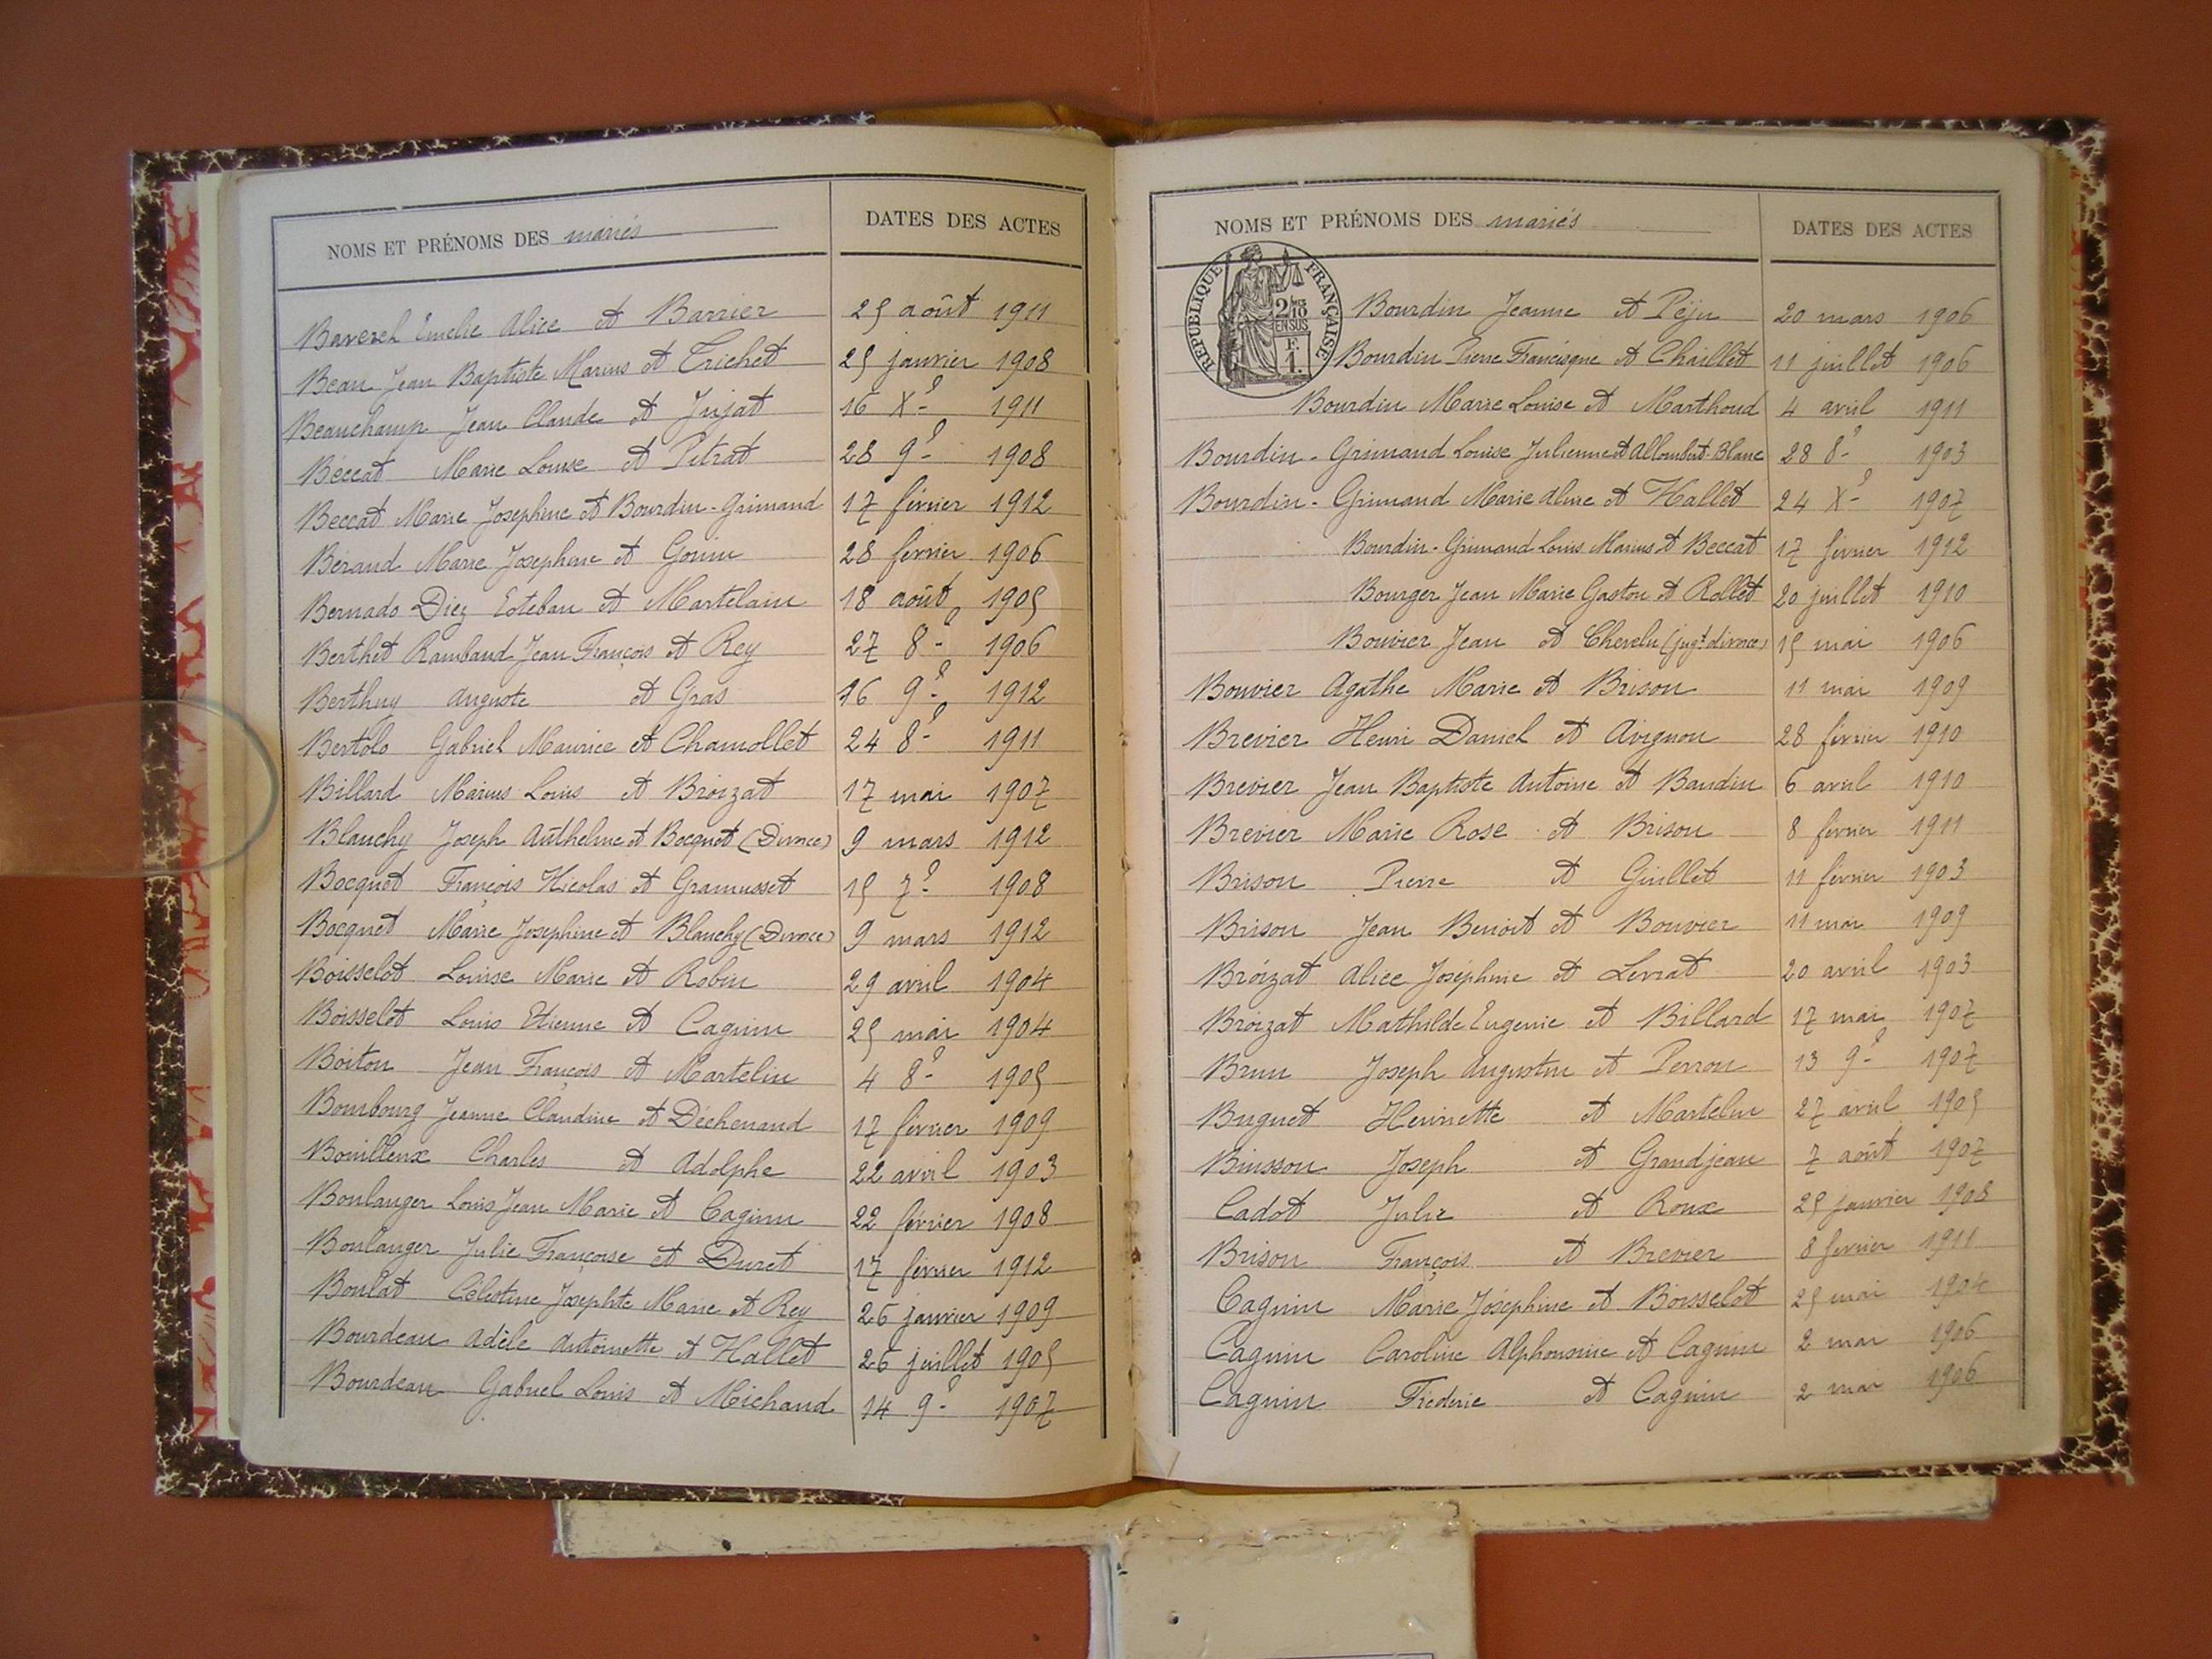 NOMS ET PRÉNOMS DES mariés DATES DES ACTES
Baverel Emelie Alice et Barrier 25 août 1911
Beau Jean Baptiste Marius et Trichet 25 janvier 1908
Beauchamp Jean Claude et Jujat 16 Xe 1911
Béccat Marie Louise et Pétrat 28 9e 1908
Beccat Marie Josephine et Bourdin-Grimaud 17 février 1912
Béraud Marie Josephine et Gonin 28 février 1906
Bernado Diez Esteban et Martelain 18 août 1905
Berthet Rambaud Jean François et Rey 27 8e 1906
Berthuy Auguste et Gras 16 9e 1912
Bertolo Gabriel Maurice et Chamollet 24 8e 1911
Billard Marius Louis et Broizat 17 mai 1907
Blanchy Joseph Anthelme et Bocquet (Divorce) 9 mars 1912
Bocquet François Nicolas et Gramusset 15 7e 1908
Bocquet Marie Josephine et Blanchy (Divorce) 9 mars 1912
Boisselot Louise Marie et Robin 29 avril 1904
Boisselot Louis Etienne et Cagnin 25 mai 1904
Boiton Jean François et Martelin 4 8e 1905
Bombourg Jeanne Claudine et Déchenaud 17 février 1909
Bouilleux Charles et Adolphe 22 avril 1903
Boulanger Louis Jean Marie et Cagnin 22 février 1908
Boulanger Julie Françoise et Duret 17 février 1912
Boulat Célestine Josephte Marie et Rey 26 janvier 1909
Bourdeau Adèle Antoinette et Hallet 26 juillet 1905
Bourdeau Gabriel Louis et Michaud 14 9e 1907
NOMS ET PRÉNOMS DES mariés DATES DES ACTES
RÉPUBLIQUE FRANÇAISE
2/10 EN SUS
F. 1.
Bourdin Jeanne et Péju 20 mars 1906
Bourdin Pierre Francisque et Chaillet 11 juillet 1906
Bourdin Marie Louise et Marthoud 4 avril 1911
Bourdin-Grimaud Louise Julienne et Allombert-Blanc 28 8e 1903
Bourdin-Grimaud Marie Aline et Hallet 24 Xe 1907
Bourdin-Grimaud Louis Marius et Beccat 17 février 1912
Bourger Jean Marie Gaston et Rollet 20 juillet 1910
Bouvier Jean et Chevelu (jugt divorce) 15 mai 1906
Bouvier Agathe Marie et Brison 11 mai 1909
Brevier Henri Daniel et Avignon 28 février 1910
Brevier Jean Baptiste Antoine et Baudin 6 avril 1910
Brevier Marie Rose et Brison 8 février 1911
Brison Pierre et Guillet 11 février 1903
Brison Jean Benoit et Bouvier 11 mai 1909
Broizat Alice Joséphine et Levrat 20 avril 1903
Broizat Mathilde Eugenie et Billard 17 mai 1907
Brun Joseph Augustin et Perron 13 9e 1907
Buguet Henriette et Martelin 27 avril 1905
Buisson Joseph et Grandjean 7 août 1907
Cadot Julie et Roux 25 janvier 1908
Brison François et Brevier 8 février 1911
Cagnin Marie Joséphine et Boisselot 25 mai 1904
Cagnin Caroline Alphonsine et Cagnin 2 mai 1906
Cagnin Fréderic et Cagnin 2 mai 1906